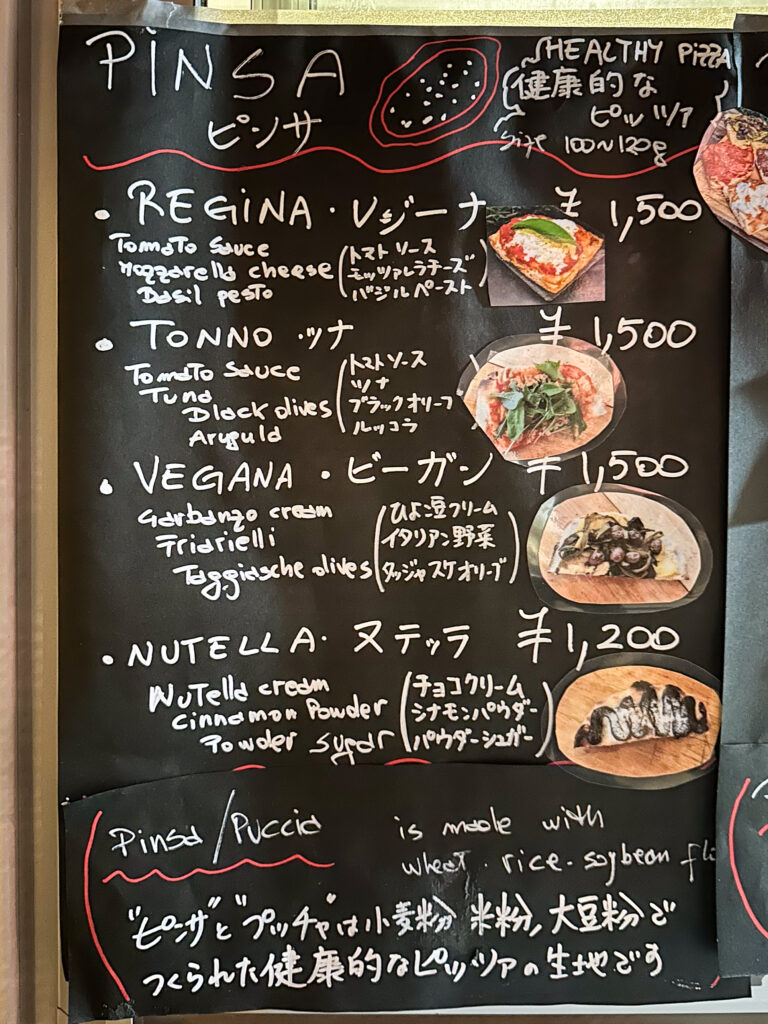 PiNSA
ピンサ
HEALTHY Pizza
健康的な
ピッツァ
Size 100~120g
• REGiNA・レジーナ ¥ 1,500
Tomato Sauce
Mozzarella cheese
Basil pesto
(トマトソース
モッツァレラチーズ
バジルペースト)
• TONNO・ツナ ¥ 1,500
Tomato Sauce
Tuna
Black olives
Arugula
(トマトソース
ツナ
ブラックオリーブ
ルッコラ
• VEGANA・ビーガン ¥ 1,500
Garbanzo cream
Friarielli
Taggiasche olives
(ひよこ豆クリーム
イタリアン野菜
タッジャスケオリーブ)
• NUTELLA・ヌテッラ ¥ 1,200
Nutella cream
Cinnamon Powder
Powder sugar
(チョコクリーム
シナモンパウダー
パウダーシュガー)
Pinsa/Puccia is made with
wheat・rice・soybean
"ピンサ"と"プッチャ"は小麦粉 米粉,大豆粉で
つくられた健康的なピッツァの生地です